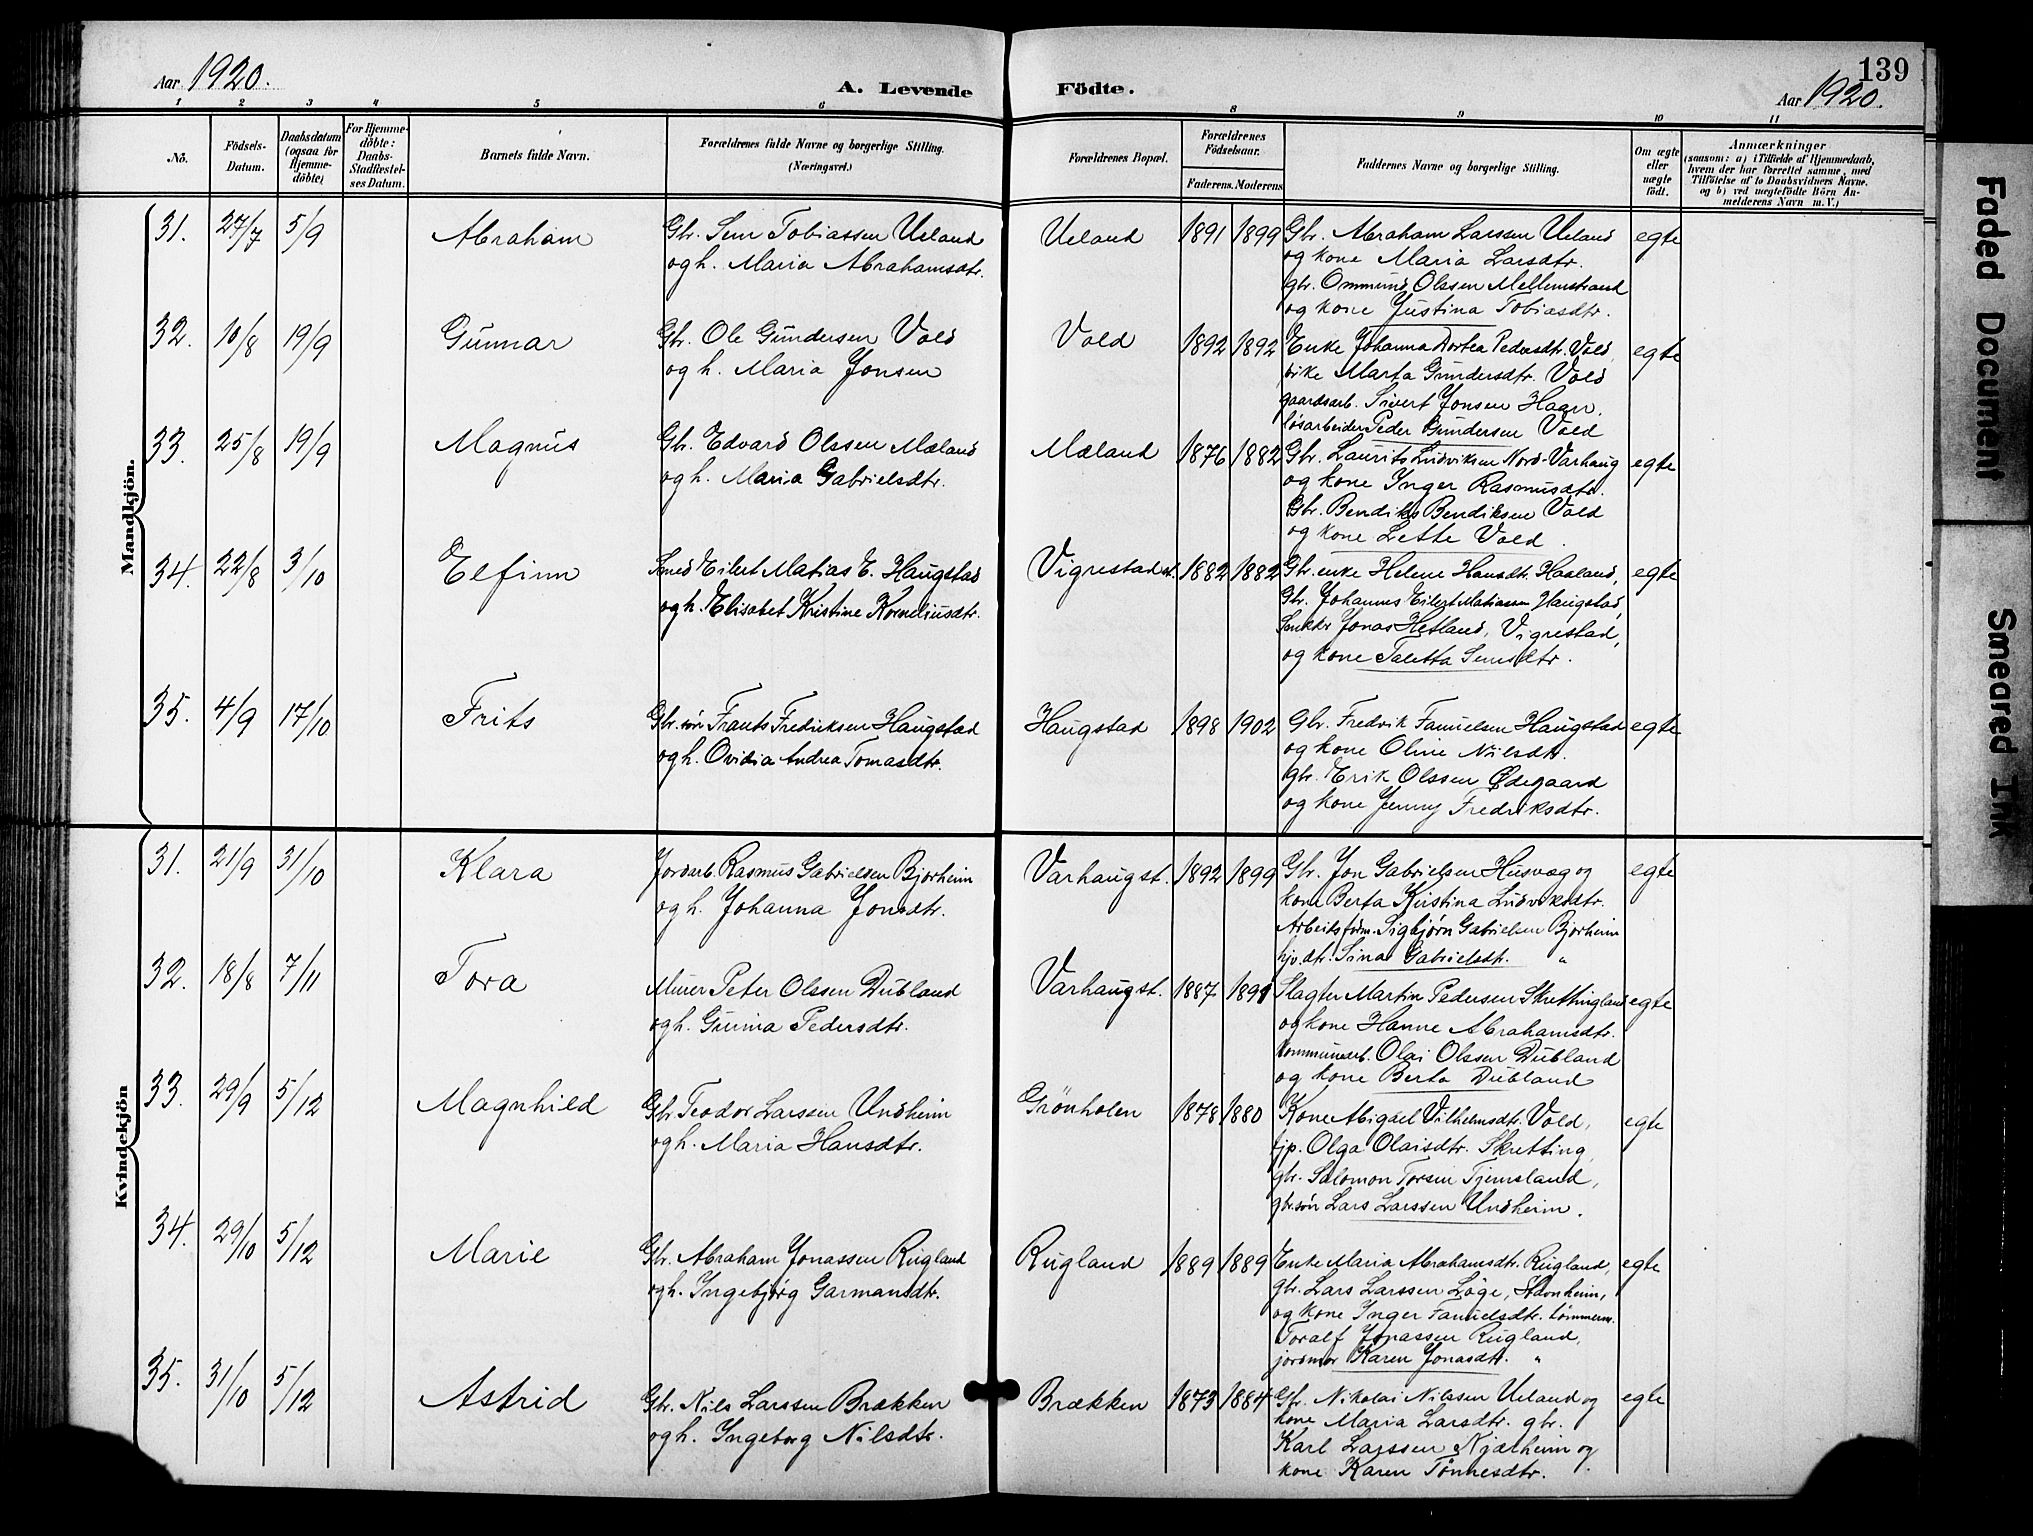 Aar 1920.
A. Levende
Födte.
139
Aar 1920.
1 2 3 4 5 6 8 9 10 11
No.
Födsels-
Datum.
Daabsdatum
(ogsaa for
Hjemme-
döbte)
For Hjemme-
döbte:
Daabs-
Stadfæstel-
ses Datum.
Barnets fulde Navn.
Forældrenes fulde Navne og borgerlige Stilling.
(Næringsvei.)
Forældrenes Bopæl.
Forældrenes
Födselsaar.
Faderens. Moderens
Faddernes Navne og borgerlige Stilling.
Om ægte
eller
uægte
födt.
Anmærkninger
(saasom: a) i Tilfælde af Hjemmedaab,
hvem der har forrettet samme, med
Tilföielse af to Daabsvidners Navne.
og b) ved uægtefödte Börn An-
melderens Navn m. V.)
Mandkjön.
31. 27/7 5/9 Abraham
Gbr. Sem Tobiassen Ueland
og h. Maria Abrahamsdtr.
Ueland 1891 1899
Gbr. Abraham Larssen Ueland
og kone Maria Larsdtr.
gbr. Ommund Olssen Mellemstrand
og kone Justina Tobiasdtr.
egte
32. 10/8 19/9 Gunnar
Gbr. Ole Gundersen Vold
og h. Maria Jonsen
Vold 1892 1892
Enke Johanna Dortea Pedersdtr. Vold,
pike Marta Gundersdtr. Vold
gaardsarb. Sivert Jonsen Haar,
løsarbeider Peder Gundersen Vold
egte
33. 25/8 19/9 Magnus
Gbr. Edvard Olssen Mæland
og h. Maria Gabrielsdtr.
Mæland 1876 1882
Gbr. Laurits Ludviksen Nord-Varhaug
og kone Inger Rasmusdtr.
Gbr. Bendiks Bendiksen Vold
og kone Lette Vold.
egte
34. 22/8 3/10 Elfinn
Smed Eilert Matias E. Haugstad
og h. Elisabet Kristine Korneliusdtr.
Vigrestad st. 1882 1882
Gbr. enke Helene Hansdtr. Haaland,
Gbr. Johannes Eilert Matiassen Haugstad,
Snekker Jonas Hetland, Vigrestad,
og kone Taletta Semsdtr.
egte
35. 4/9 17/10 Frits
Gbr. søn Frants Fredriksen Haugstad
og h. Ovidia Andrea Tomasdtr.
Haugstad 1898 1902
Gbr. Fredrik Famuelsen Haugstad
og kone Oline Nilsdtr.
gbr. Erik Olssen Ødegaard
og kone Jenny Fredriksdtr.
egte
Kvindekjön
31. 21/9 31/10 Klara
Jordarb. Rasmus Gabrielsen Bjorheim
og h. Johanna Jonsdtr.
Varhaug st. 1892 1899
Gbr. Jon Gabrielsen Husvæg og
kone Berta Kristina Ludviksdtr.
Arbeitsform. Sigbjørn Gabrielsen Bjorheim
hjv. dtr. Sina Gabrielsdtr. "
egte
32. 18/8 7/11 Tora
Murer Peter Olssen Dubland
og h. Gurina Pedersdtr.
Varhaug st. 1887 1891
Slagter Martin Pedersen Skrettingland
og kone Hanne Abrahamsdtr.
Kommunearb. Olai Olssen Dubland
og kone Berta Dubland
egte
33. 29/9 5/12 Magnhild
Gbr. Teodor Larssen Undheim
og h. Maria Hansdtr.
Grønholen 1878 1880
Kone Abigael Vilhelmsdtr. Vold,
tjp. Olga Olaisdtr. Skretting,
gbr. Salomon Torsen Tjemsland,
gbr. søn Lars Larssen Undheim.
egte
34. 29/10 5/12 Marie
Gbr. Abraham Jonassen Rugland
og h. Ingebjørg Garmansdtr.
Rugland 1889 1889
Enke Maria Abrahamsdtr. Rugland,
gbr. Lars Larssen Løge, Stavnheim,
og kone Inger Famuelsdtr. tømmerm.
Toralf Jonassen Rugland,
jordmor Karen Jonasdtr. "
egte
35. 31/10 5/12 Astrid
Gbr. Nils Larssen Brækken
og h. Ingeborg Nilsdtr.
Brækken 1873 1884
Gbr. Nikolai Nilssen Ueland og
kone Maria Larsdtr. gbr.
Karl Larssen Njælheim og
kone Karen Tønnesdtr.
egte
Faded Document
Smeared Ink